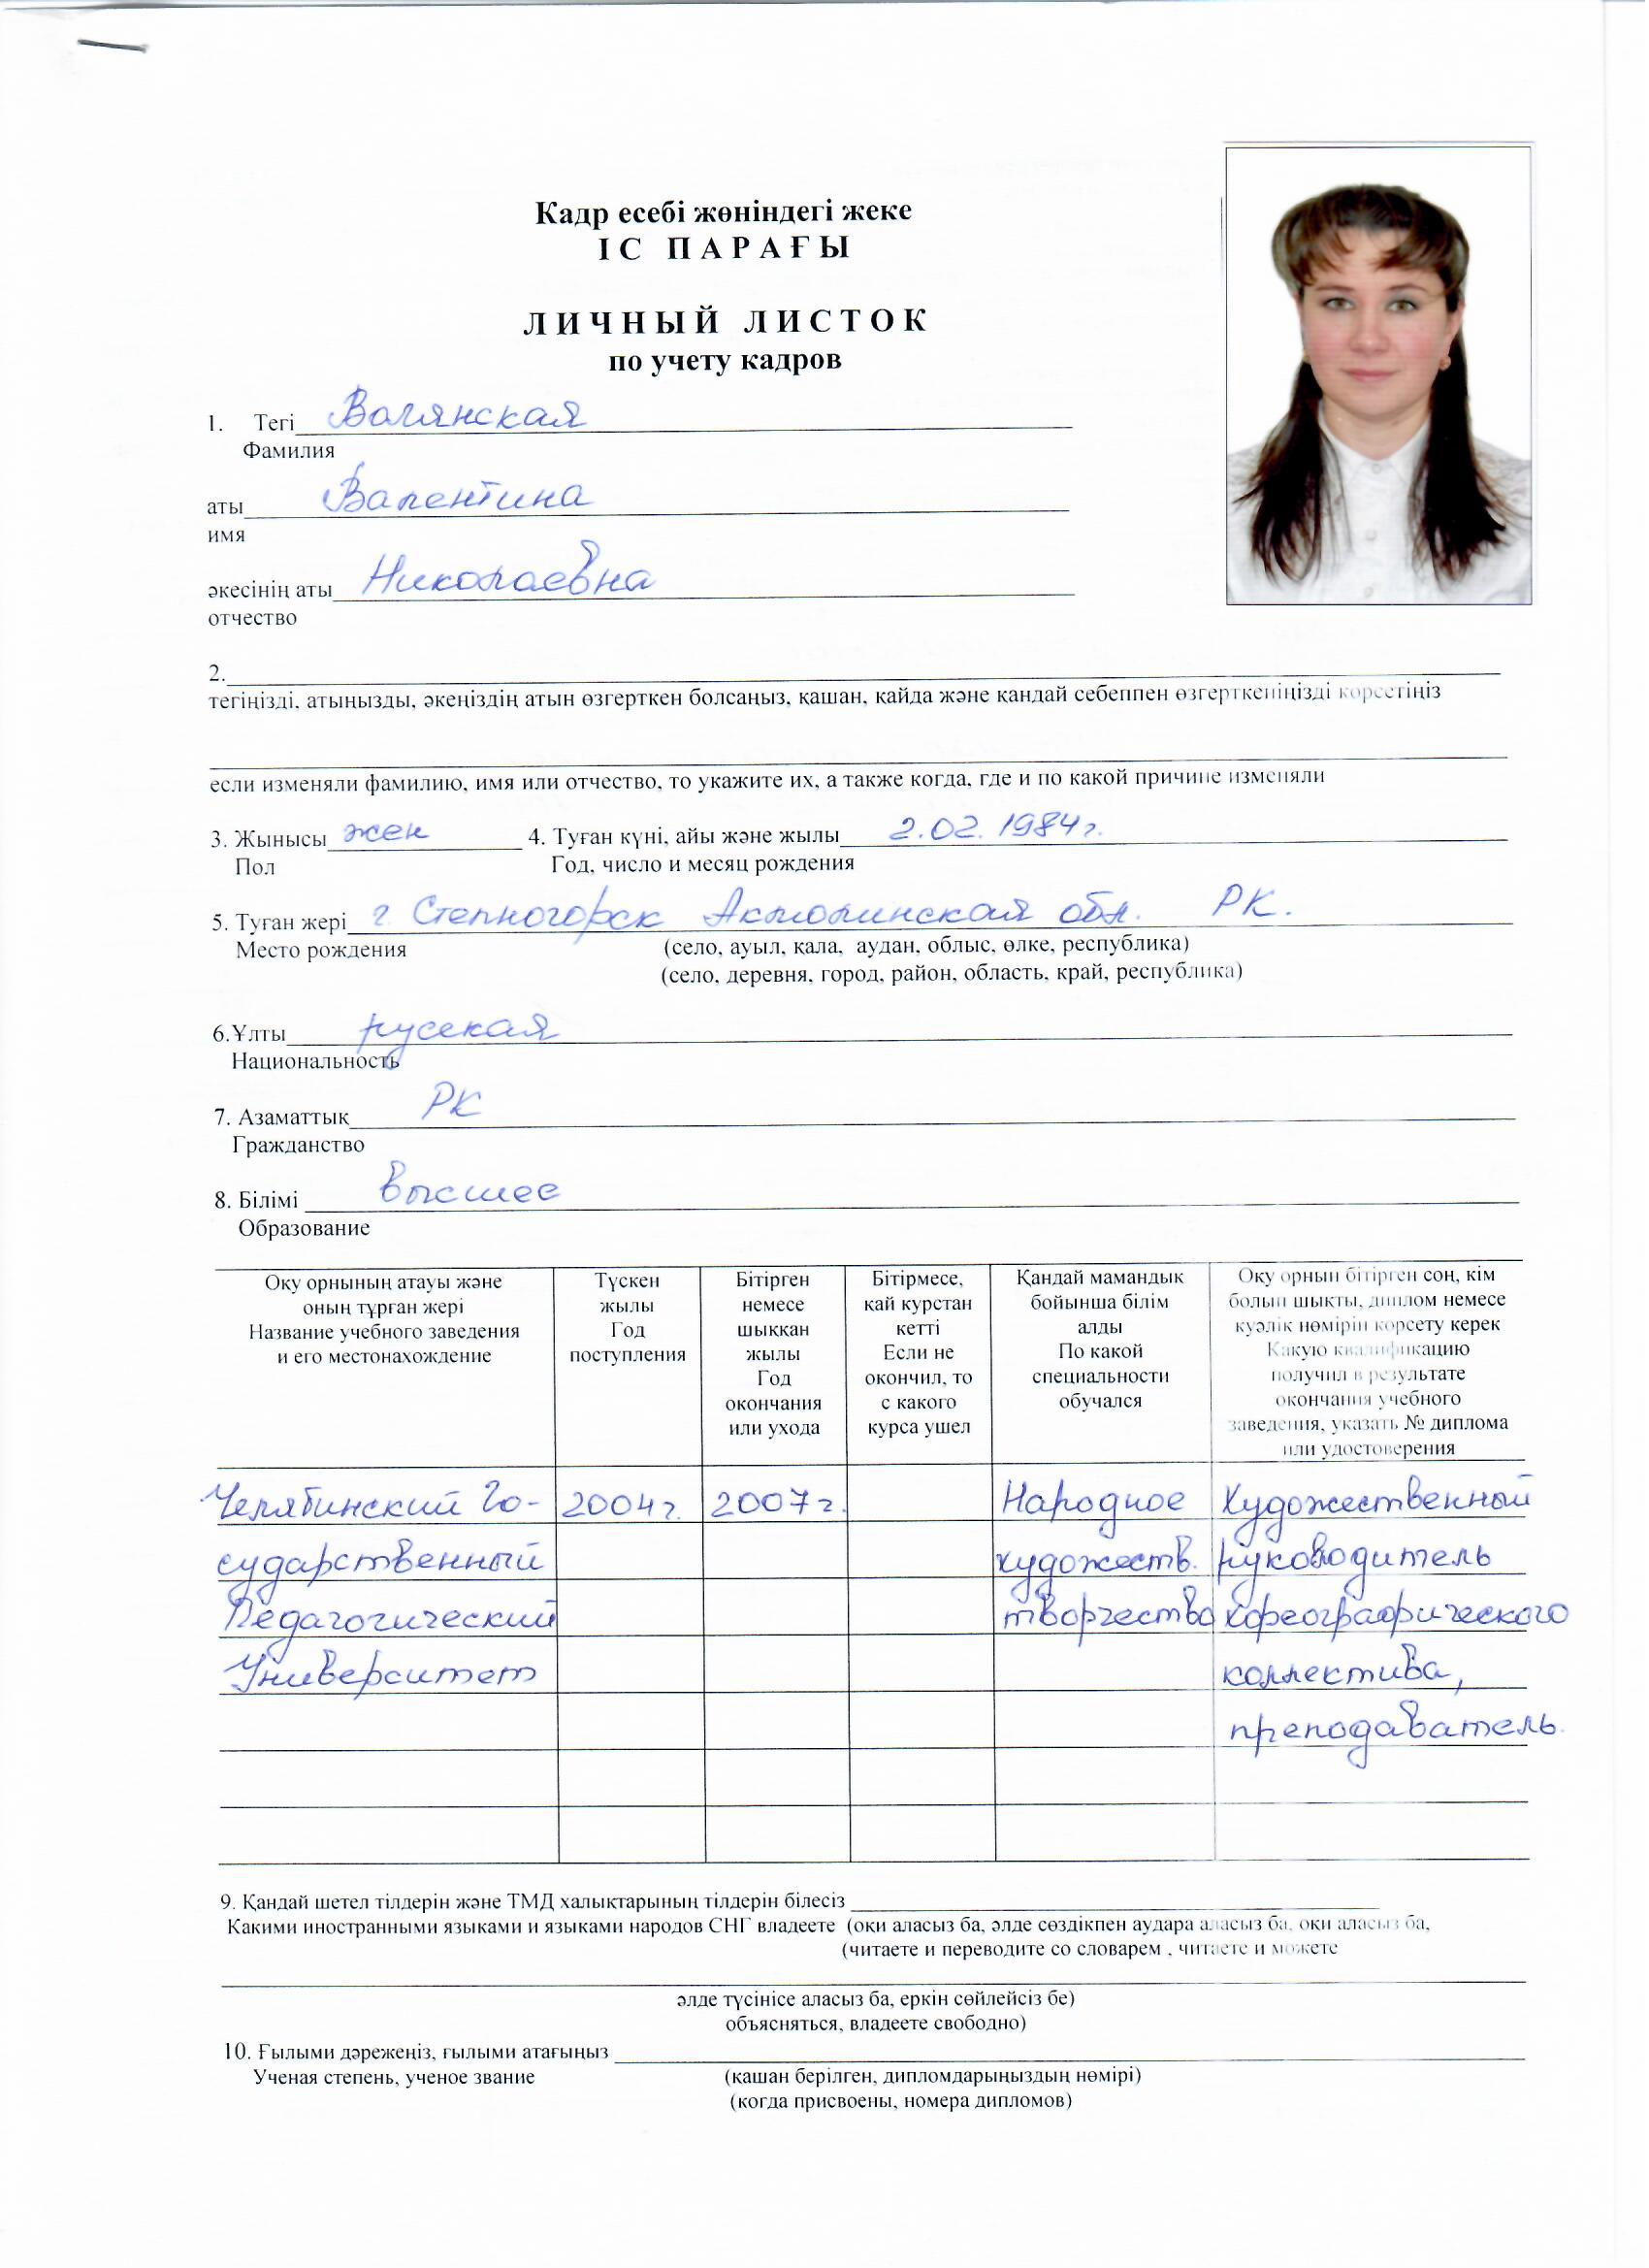 Кадр есебі жөніндегі жеке
ІС ПАРАҒЫ
ЛИЧНЫЙ ЛИСТОК
по учету кадров
1. Тегі Волянская
Фамилия
аты Валентина
имя
әкесінің аты Николаевна
отчество
2.
тегіңізді, атыңызды, әкеңіздің атын өзгерткен болсаңыз, қашан, қайда және қандай себеппен өзгерткеніңізді көрсетіңіз
если изменяли фамилию, имя или отчество, то укажите их, а также когда, где и по какой причине изменяли
3. Жынысы жен 4. Туған күні, айы және жылы 2.02.1984г.
Пол Год, число и месяц рождения
5. Туған жері г. Степногорск Акмолинская обл. РК.
Место рождения (село, ауыл, қала, аудан, облыс, өлке, республика)
(село, деревня, город, район, область, край, республика)
6.Ұлты русская
Национальность
7. Азаматтық РК
Гражданство
8. Білімі высшее
Образование
Оқу орнының атауы және
оның тұрған жері
Название учебного заведения
и его местонахождение
Түскен
жылы
Год
поступления
Бітірген
немесе
шыққан
жылы
Год
окончания
или ухода
Бітірмесе,
қай курстан
кетті
Если не
окончил, то
с какого
курса ушел
Қандай мамандық
бойынша білім
алды
По какой
специальности
обучался
Оқу орнын бітірген соң, кім
болып шықты, диплом немесе
куәлік нөмірін көрсету керек
Какую квалификацию
получил в результате
окончания учебного
заведения, указать № диплома
или удостоверения
Челябинский Го- 2004г. 2007г. Народное Художественный
сударственный художеств. руководитель
Педагогический творчество хореографического
Университет коллектива,
преподаватель.
9. Қандай шетел тілдерін және ТМД халықтарының тілдерін білесіз
Какими иностранными языками и языками народов СНГ владеете (оқи аласыз ба, әлде сөздікпен аудара аласыз ба, оқи аласыз ба,
(читаете и переводите со словарем , читаете и можете
әлде түсінісе аласыз ба, еркін сөйлейсіз бе)
объясняться, владеете свободно)
10. Ғылыми дәрежеңіз, ғылыми атағыңыз
Ученая степень, ученое звание (қашан берілген, дипломдарыңыздың нөмірі)
(когда присвоены, номера дипломов)